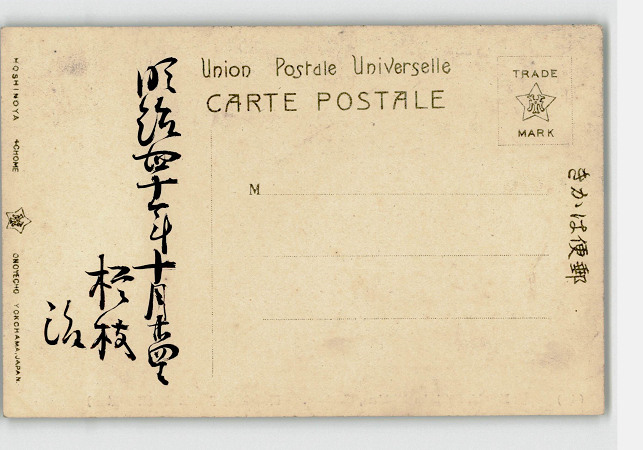 Union Postale Universelle
CARTE POSTALE
TRADE
MARK
M
きかは便郵
明治四十一年十月廿四日
松枝
治
HOSHINOYA 4CHOME ONOYECHO YOKOHAMA, JAPAN.